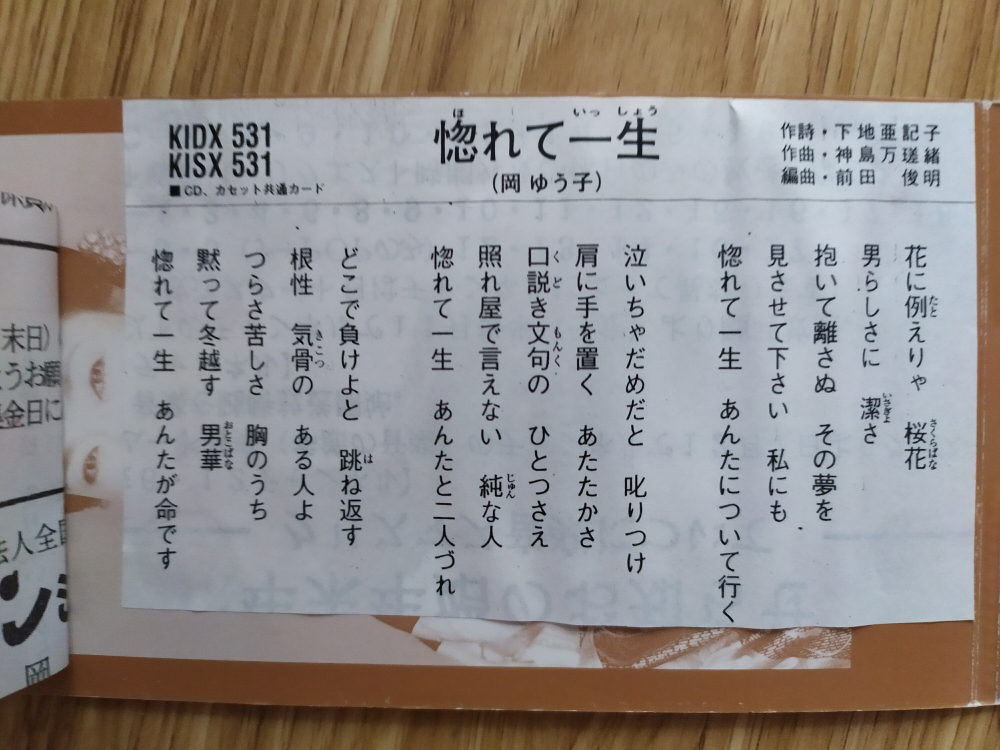 KIDX 531
KISX 531
■CD、カセット共通カード
惚れて一生
（岡 ゆう子）
作詩・下地亜記子
作曲・神島万瑳緒
編曲・前田 俊明
花に例えりゃ 桜花
男らしさに 潔さ
抱いて離さぬ その夢を
見させて下さい 私にも
惚れて一生 あんたについて行く
泣いちゃだめだと 叱りつけ
肩に手を置く あたたかさ
口説き文句の ひとつさえ
照れ屋で言えない 純な人
惚れて一生 あんたと二人づれ
どこで負けよと 跳ね返す
根性 気骨の ある人よ
つらさ苦しさ 胸のうち
黙って冬越す 男華
惚れて一生 あんたが命です
末日）
うお願
金日に
人全国
ン
岡